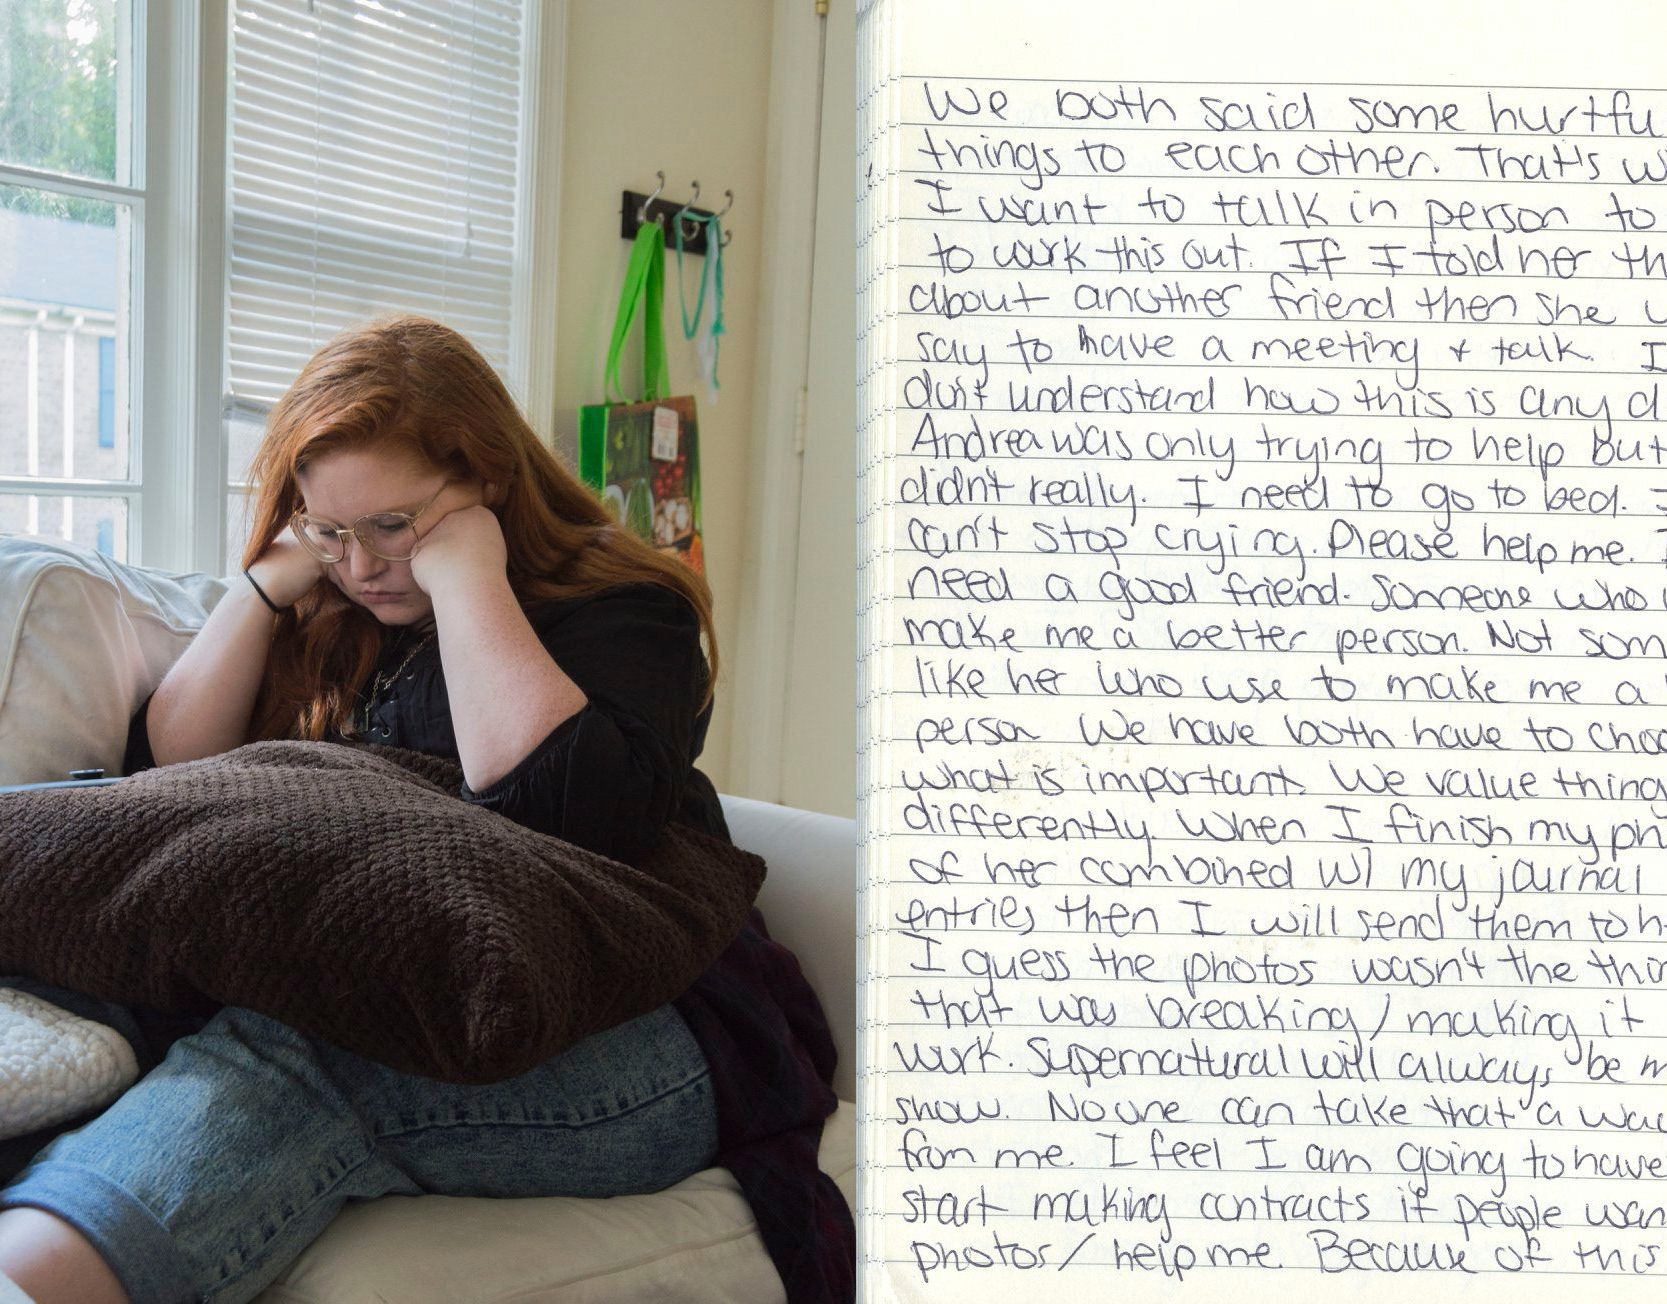 We both said some hurtfu
things to each other. That's w
I want to talk in person to
to work this out. If I told her th
about another friend then she w
say to have a meeting & talk. I
don't understand how this is any d
Andrea was only trying to help but
didn't really. I need to go to bed. I
can't stop crying. Please help me. I
need a good friend. Someone who
make me a better person. Not som
like her who use to make me a
person We have both have to choo
what is important. We value thing
differently. When I finish my ph
of her combined w/ my journal
entries then I will send them to h
I guess the photos wasn't the thin
that was breaking/making it
work. Supernatural will always be m
show. No one can take that a way
from me. I feel I am going to have
start making contracts if people wan
photos/help me. Because of this